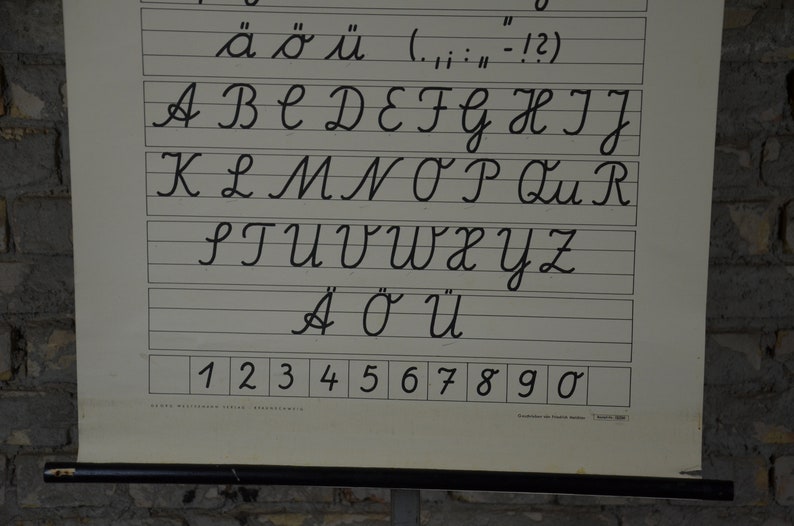 ä ö ü (. , ; ¡ : „ " - ! ? )
A B C D E F G H I J
K L M N O P Qu R
S T U V W X Y Z
Ä Ö Ü
1 2 3 4 5 6 7 8 9 0
GEORG WESTERMANN VERLAG · BRAUNSCHWEIG
Geschrieben von Friedrich